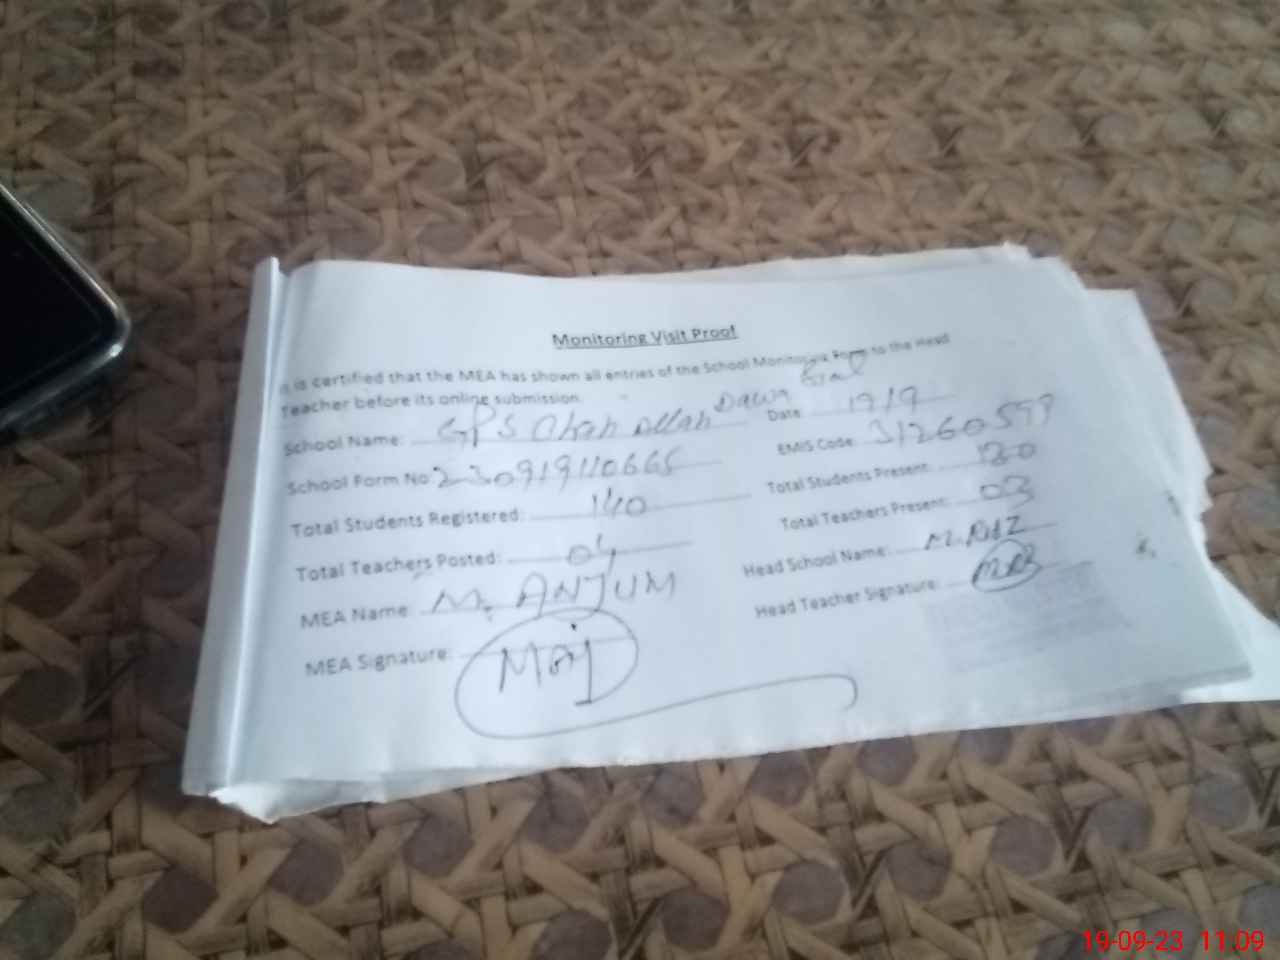 Monitoring Visit Proof
It is certified that the MEA has shown all entries of the School Monitoring Form to the Head
Teacher before its online submission.
School Name: GPS Chah Allah Dawa Date 19/9
School Form No: 230919110665 EMIS Code: 31260599
Total Students Registered: 140 Total Students Present: 120
Total Teachers Posted: 04 Total Teachers Present: 03
MEA Name M. ANJUM Head School Name: M.
MEA Signature: Head Teacher Signature:
19-09-23 11:09